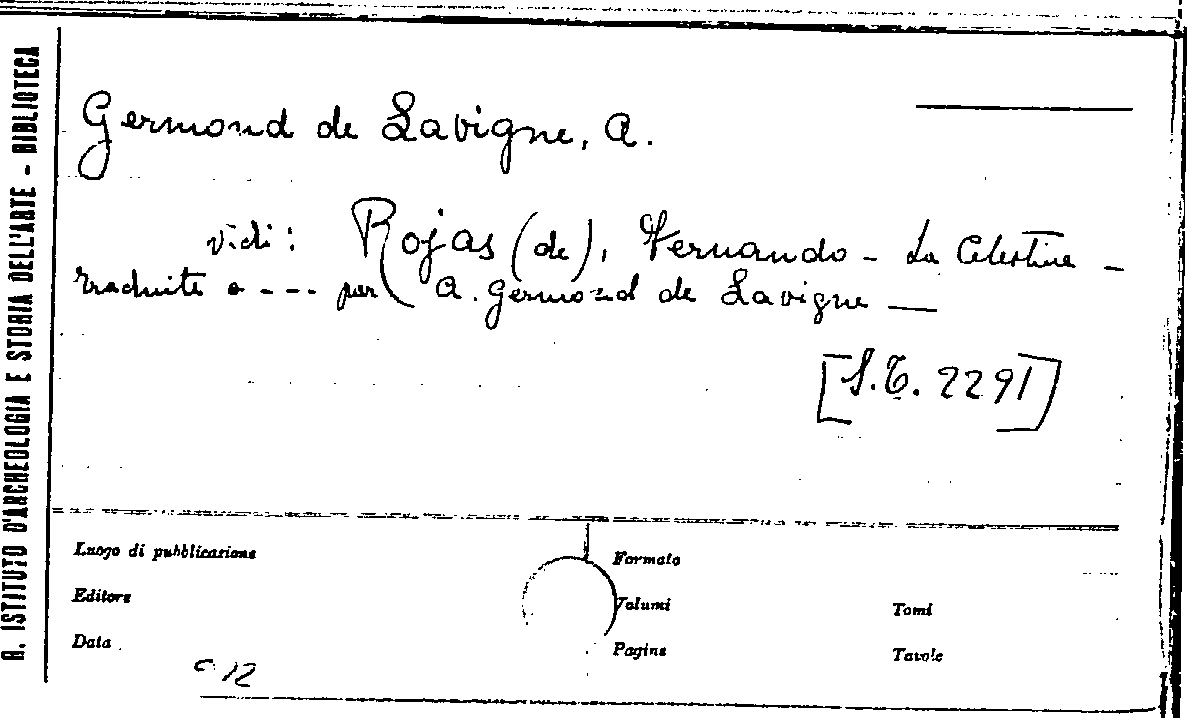 R. ISTITUTO D'ARCHEOLOGIA E STORIA DELL'ARTE - BIBLIOTECA
Germond de Lavigne, A.
vidi: Rojas (de), Fernando - La Celestine -
traduite o --- par A. Germond de Lavigne —
[S.T. 2291]
Luogo di pubblicazione
Formato
Editore
Volumi
Tomi
Data
Pagine
Tavole
c 12